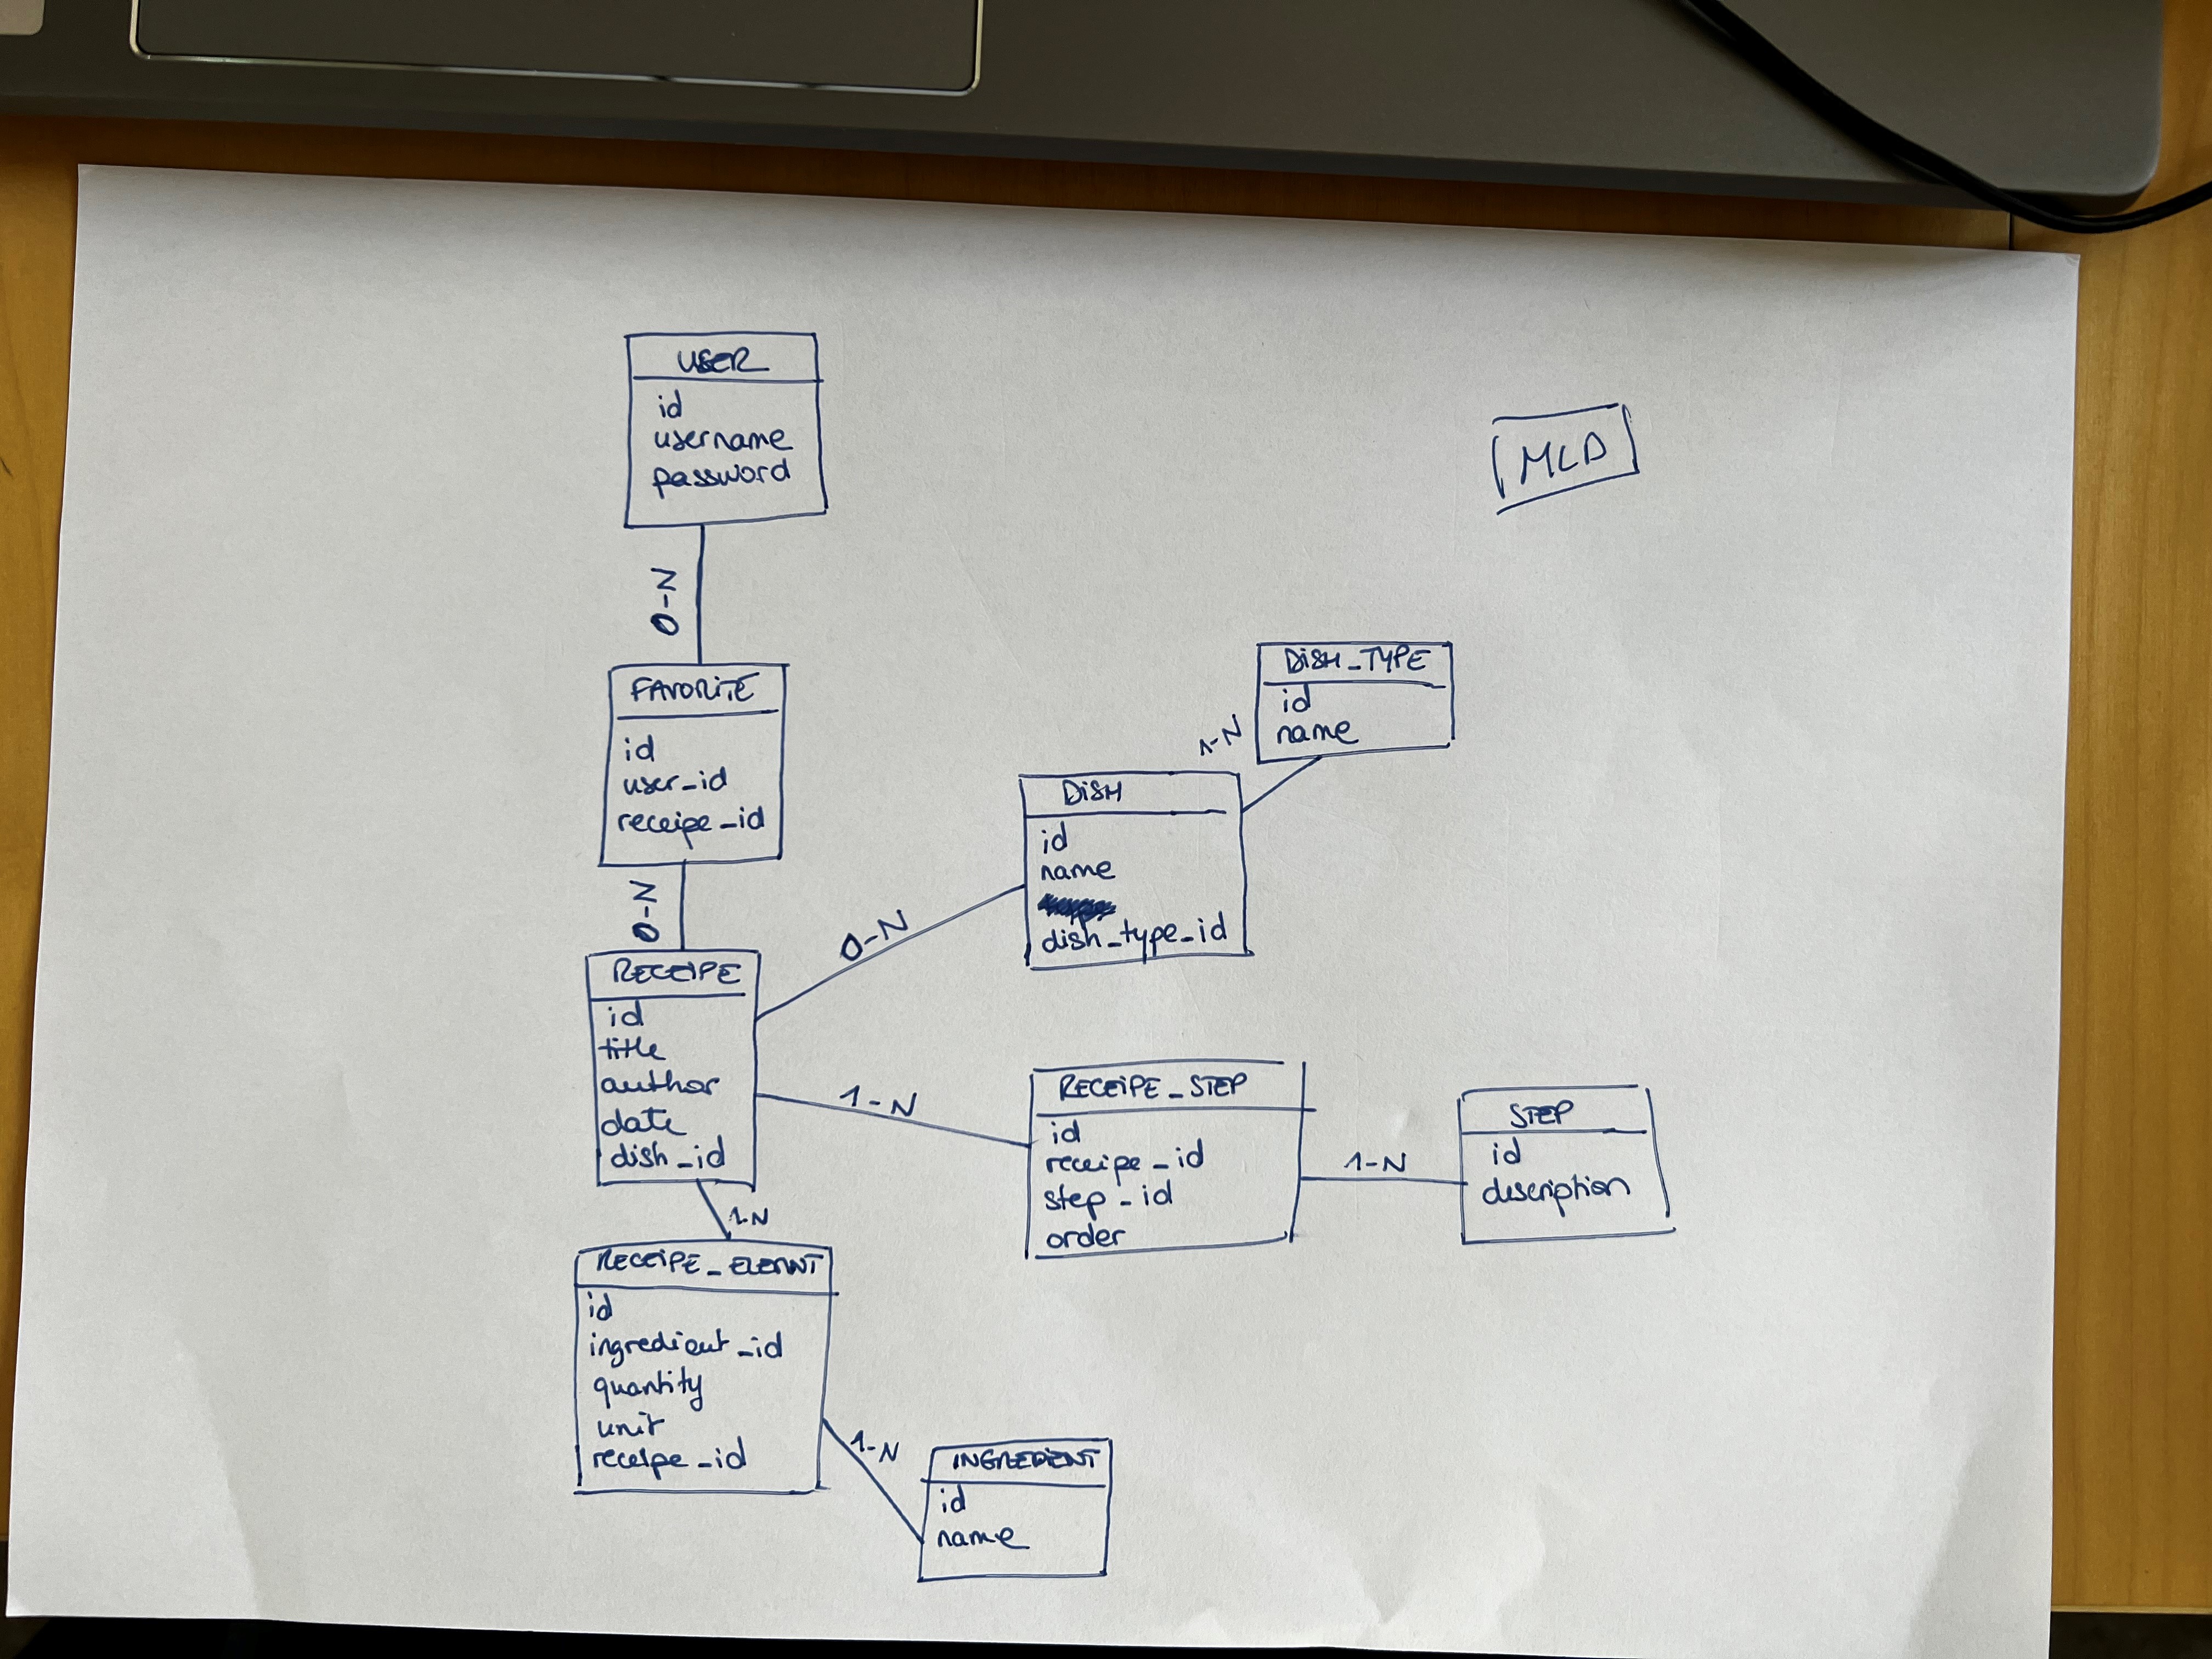 USER
id
username
password
MLD
0-N
FAVORITE
id
user_id
receipe_id
0-N
RECEIPE
id
title
author
date
dish_id
0-N
DISH
id
name
dish_type_id
1-N
DISH_TYPE
id
name
1-N
RECEIPE_STEP
id
receipe_id
step_id
order
1-N
STEP
id
description
1-N
RECEIPE_ELEMNT
id
ingredient_id
quantity
unit
receipe_id
1-N
INGREDIENT
id
name